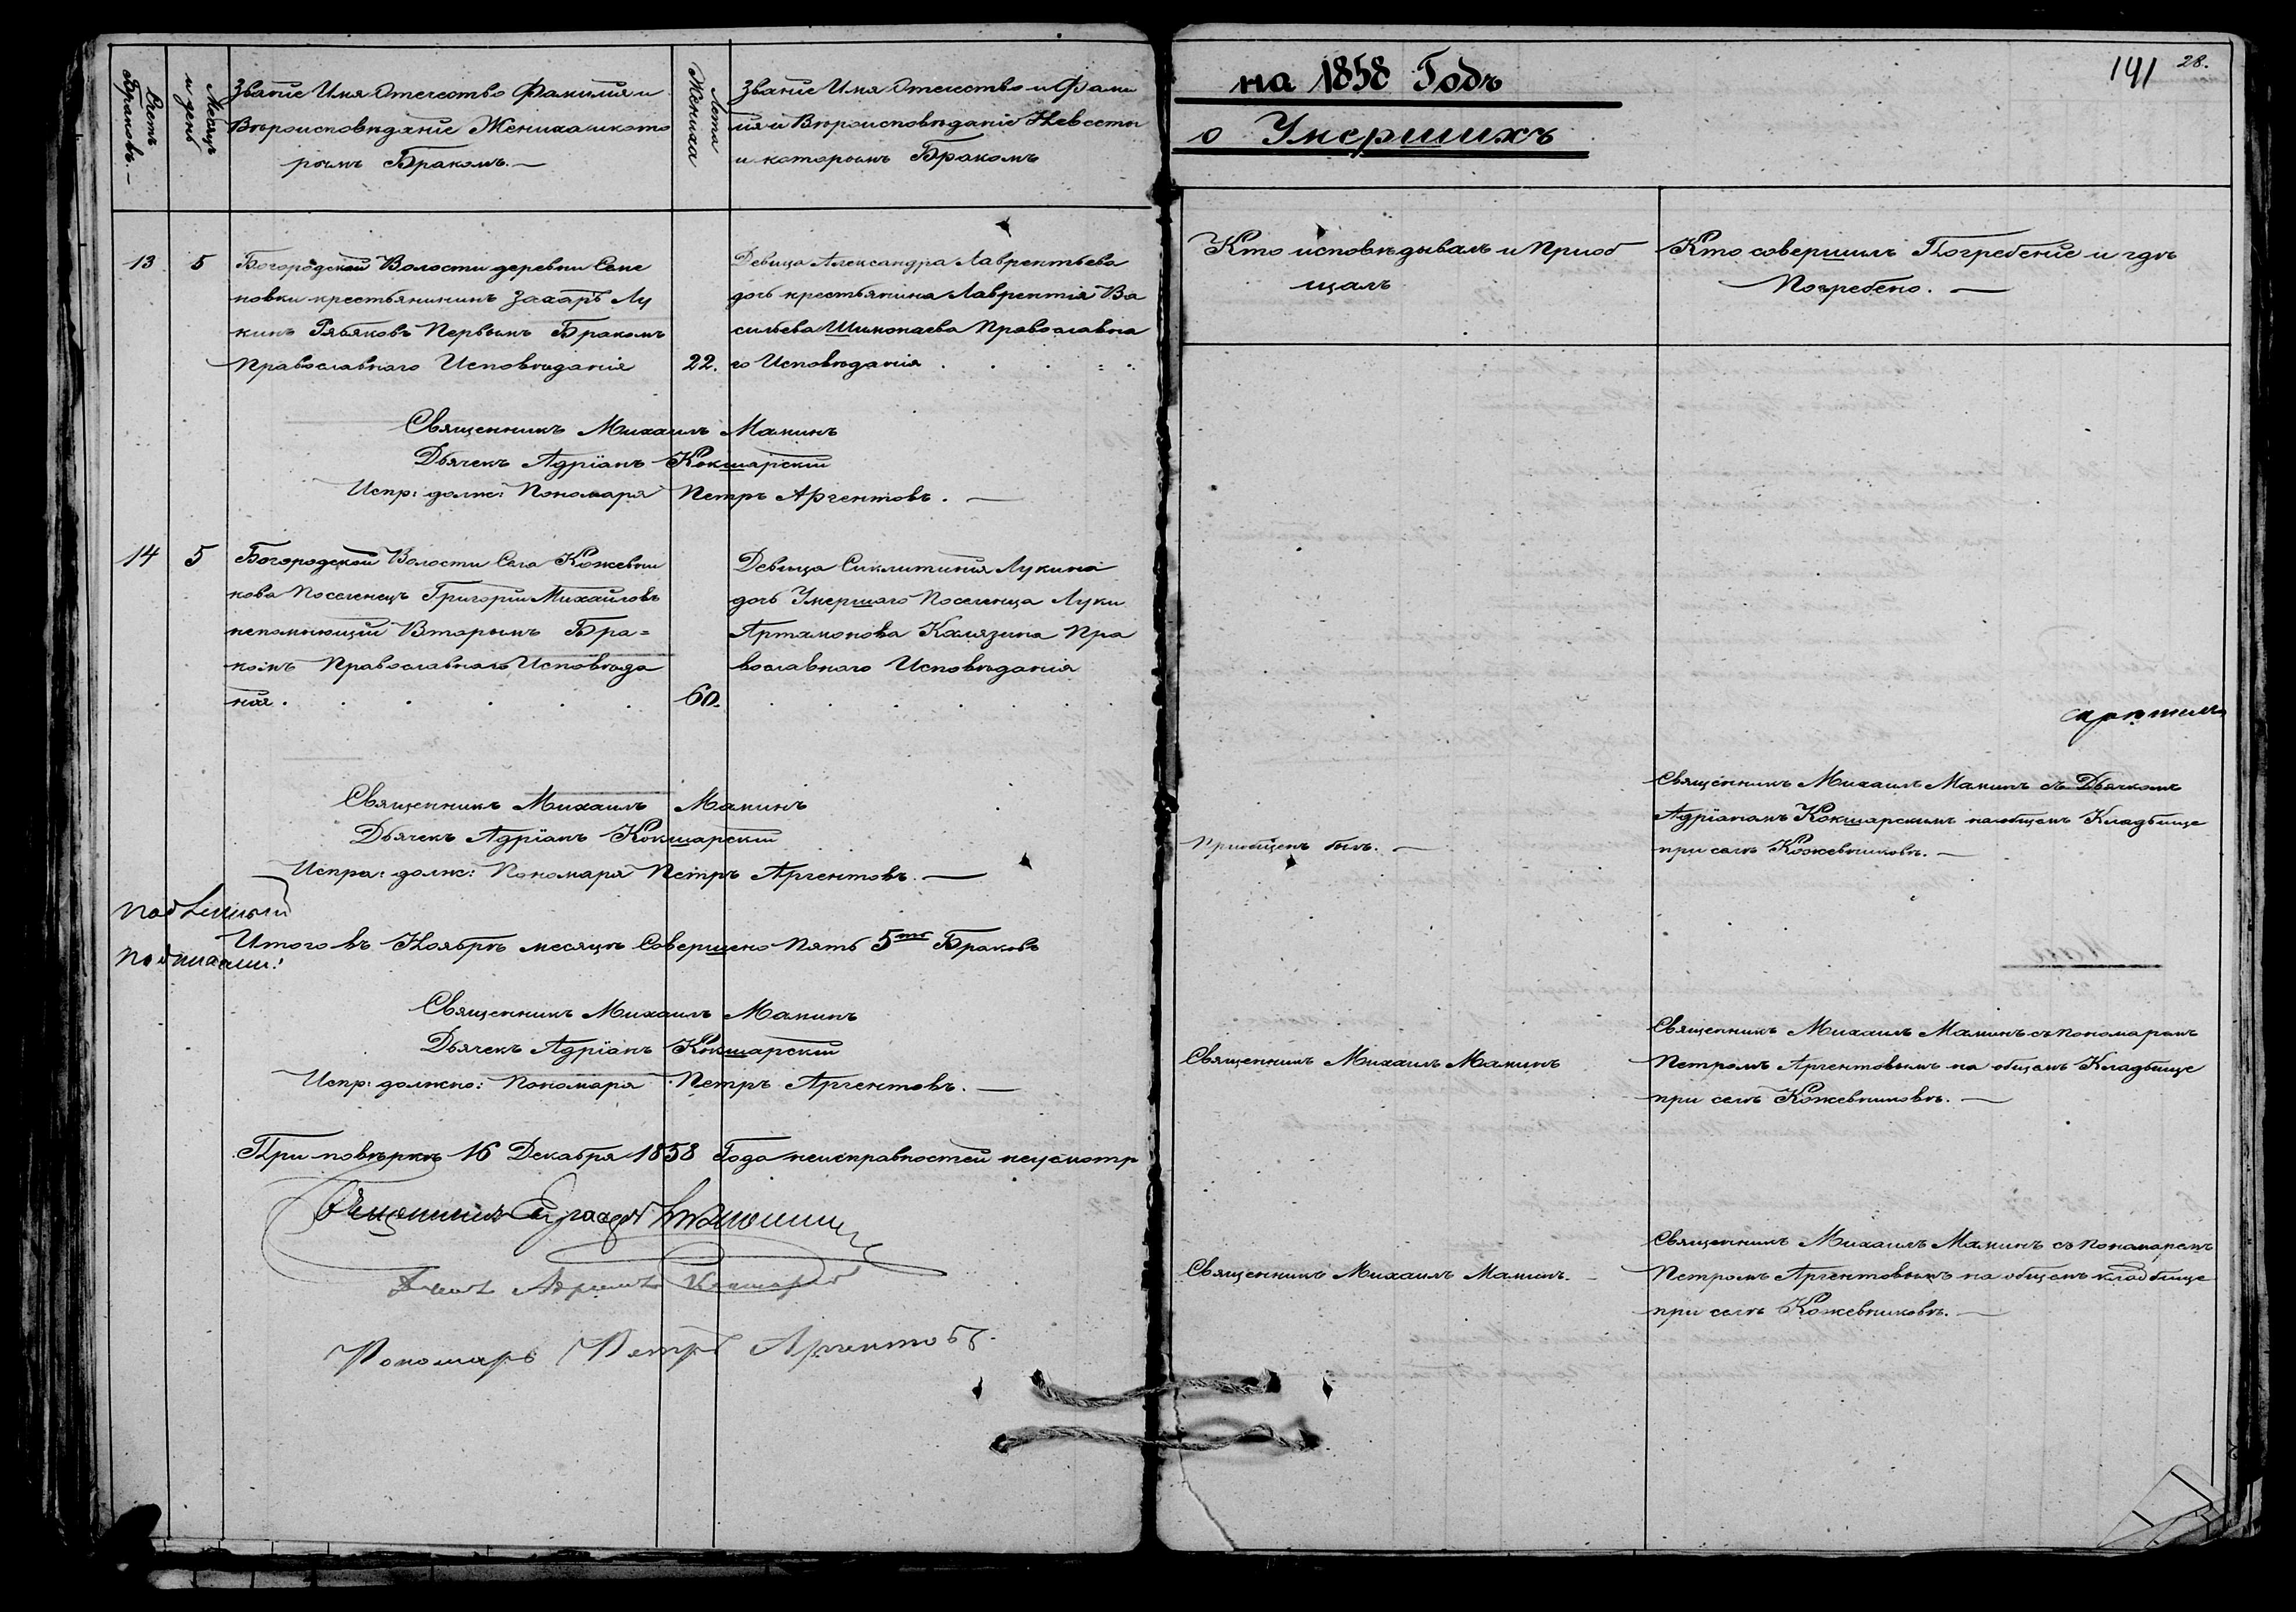 Счетъ Браковъ.—
Месяцъ и день
Званіе Имя Отечество Фамилія и
Вѣроисповѣданіе Жениха и кото
рымъ Бракомъ.—
Лета Жениха
Званіе Имя Отечество и Фами
лія и Вѣроисповѣданіе Невесты
и которымъ Бракомъ
13
5
Богородской Волости деревни
новки крестьянинъ Захаръ Лу
кинъ Первымъ Бракомъ
Православнаго Исповѣданія
22.
Девица Александра Лаврентьева
дочь крестьянина Лаврентія Ва
сильева Православна
го Исповѣданія
Священникъ Михаилъ Манинъ
Дьячекъ Адріанъ Кокшарскій
Испр: долж: Пономаря Петръ Аргентовъ.—
14
5
Богородской Волости Села Кожевни
кова Поселенецъ Григорій Михайловъ
непомнющій Вторымъ Бра=
комъ Православнаго Исповѣда
нія.
60.
Девица Сиклитинія Лукина
дочь Умершаго Поселенца Луки
Артамонова Калязина Пра
вославнаго Исповѣданія
Священникъ Михаилъ Манинъ
Дьячекъ Адріанъ Кокшарскій
Испра: долж: Пономаря Петръ Аргентовъ.—
Итого въ Ноябрѣ месяцѣ Совершено Пять 5ть Браковъ
Священникъ Михаилъ Манинъ
Дьячекъ Адріанъ Кокшарскій
Испр: должно: Пономаря Петръ Аргентовъ.—
При повѣркѣ 16 Декабря 1858 Года неисправностей неусмотр
Пономарь Петръ Аргентовъ.
на 1858 Годъ
141
28.
о Умершихъ
Кто исповѣдывалъ и Приоб
щалъ
Кто совершилъ Погребеніе и гдѣ
Погребено.—
Приобщенъ былъ.—
Священникъ Михаилъ Манинъ съ Дьячкомъ
Адріаномъ Кокшарскимъ на общемъ Кладбище
при селѣ Кожевниковѣ.—
Священникъ Михаилъ Манинъ
Священникъ Михаилъ Манинъ съ пономаремъ
Петромъ Аргентовымъ на общемъ Кладбище
при селѣ Кожевниковѣ.—
Священникъ Михаилъ Манинъ.—
Священникъ Михаилъ Манинъ съ пономаремъ
Петромъ Аргентовымъ на общемъ кладбище
при селѣ Кожевниковѣ.—